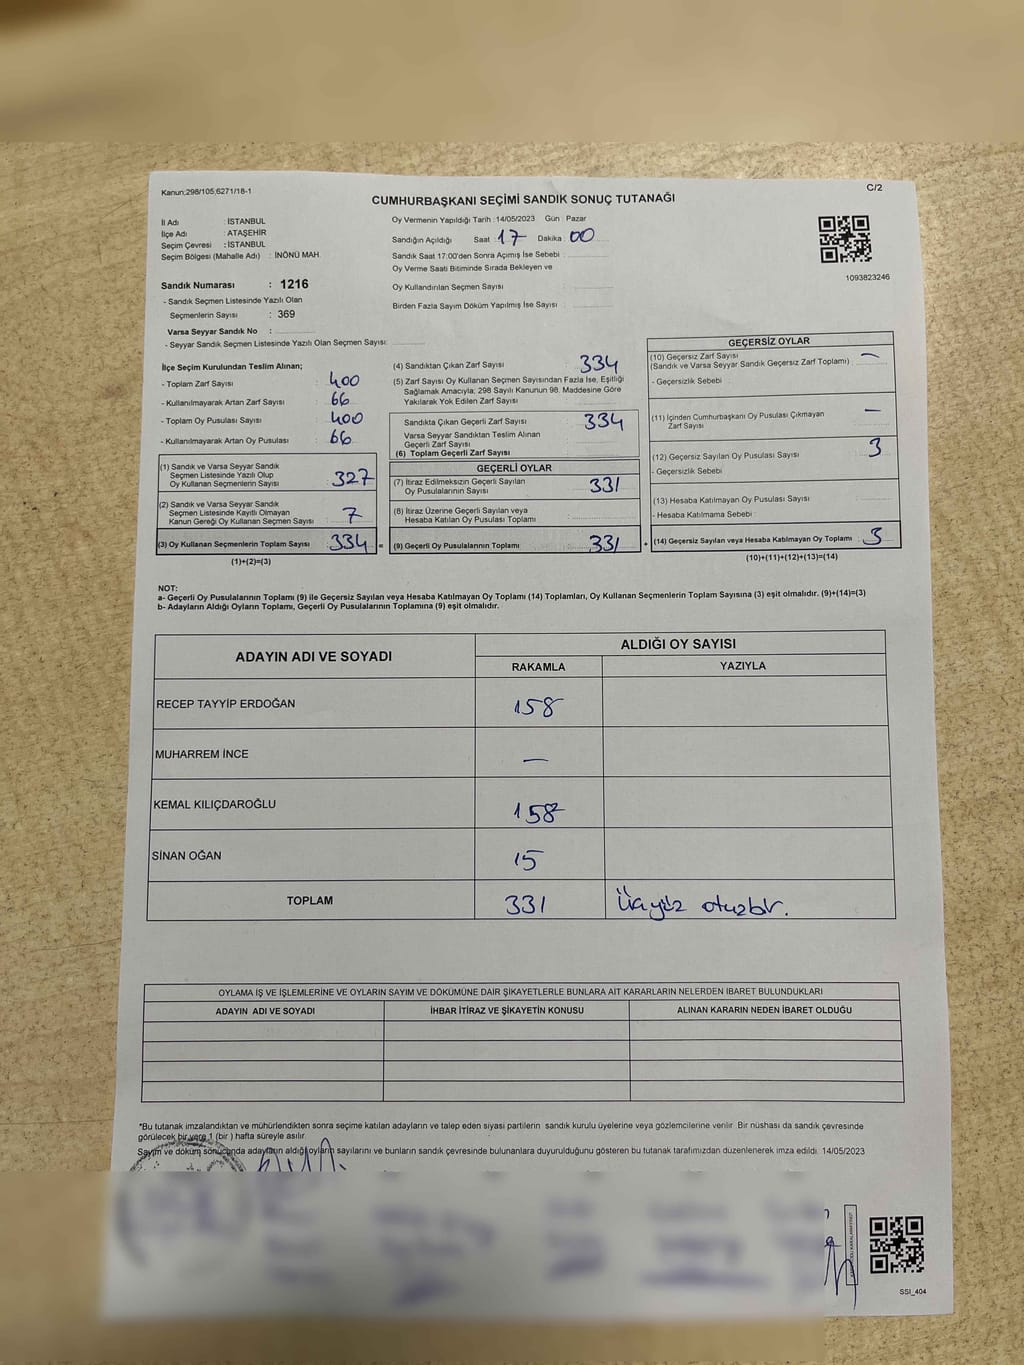 Kanun:298/105,6271/18-1
C/2
CUMHURBAŞKANI SEÇİMİ SANDIK SONUÇ TUTANAĞI
İl Adı : İSTANBUL
İlçe Adı : ATAŞEHİR
Seçim Çevresi : İSTANBUL
Seçim Bölgesi (Mahalle Adı) : İNÖNÜ MAH.
Sandık Numarası : 1216
- Sandık Seçmen Listesinde Yazılı Olan
Seçmenlerin Sayısı : 369
Varsa Seyyar Sandık No :
- Seyyar Sandık Seçmen Listesinde Yazılı Olan Seçmen Sayısı:
Oy Vermenin Yapıldığı Tarih :14/05/2023 Gün : Pazar
Sandığın Açıldığı Saat : 17 Dakika : 00
Sandık Saat 17:00'den Sonra Açımış İse Sebebi :
Oy Verme Saati Bitiminde Sırada Bekleyen ve
Oy Kullandırılan Seçmen Sayısı :
Birden Fazla Sayım Döküm Yapılmış İse Sayısı :
1093823246
İlçe Seçim Kurulundan Teslim Alınan;
- Toplam Zarf Sayısı : 400
- Kullanılmayarak Artan Zarf Sayısı : 66
- Toplam Oy Pusulası Sayısı : 400
- Kullanılmayarak Artan Oy Pusulası : 66
(1) Sandık ve Varsa Seyyar Sandık
Seçmen Listesinde Yazılı Olup
Oy Kullanan Seçmenlerin Sayısı : 327
(2) Sandık ve Varsa Seyyar Sandık
Seçmen Listesinde Kayıtlı Olmayan
Kanun Gereği Oy Kullanan Seçmen Sayısı : 7
(3) Oy Kullanan Seçmenlerin Toplam Sayısı : 334 =
(1)+(2)=(3)
(4) Sandıktan Çıkan Zarf Sayısı : 334
(5) Zarf Sayısı Oy Kullanan Seçmen Sayısından Fazla İse, Eşitliği
Sağlamak Amacıyla; 298 Sayılı Kanunun 98. Maddesine Göre
Yakılarak Yok Edilen Zarf Sayısı :
Sandıkta Çıkan Geçerli Zarf Sayısı : 334
Varsa Seyyar Sandıktan Teslim Alınan
Geçerli Zarf Sayısı :
(6) Toplam Geçerli Zarf Sayısı :
GEÇERLİ OYLAR
(7) İtiraz Edilmeksizin Geçerli Sayılan
Oy Pusulalarının Sayısı : 331
(8) İtiraz Üzerine Geçerli Sayılan veya
Hesaba Katılan Oy Pusulası Toplamı :
(9) Geçerli Oy Pusulalarının Toplamı : 331 +
GEÇERSİZ OYLAR
(10) Geçersiz Zarf Sayısı : —
(Sandık ve Varsa Seyyar Sandık Geçersiz Zarf Toplamı)
- Geçersizlik Sebebi :
(11) İçinden Cumhurbaşkanı Oy Pusulası Çıkmayan
Zarf Sayısı : —
(12) Geçersiz Sayılan Oy Pusulası Sayısı : 3
- Geçersizlik Sebebi :
(13) Hesaba Katılmayan Oy Pusulası Sayısı :
- Hesaba Katılmama Sebebi :
(14) Geçersiz Sayılan veya Hesaba Katılmayan Oy Toplamı : 3
(10)+(11)+(12)+(13)=(14)
NOT:
a- Geçerli Oy Pusulalarının Toplamı (9) ile Geçersiz Sayılan veya Hesaba Katılmayan Oy Toplamı (14) Toplamları, Oy Kullanan Seçmenlerin Toplam Sayısına (3) eşit olmalıdır. (9)+(14)=(3)
b- Adayların Aldığı Oyların Toplamı, Geçerli Oy Pusulalarının Toplamına (9) eşit olmalıdır.
ADAYIN ADI VE SOYADI
ALDIĞI OY SAYISI
RAKAMLA YAZIYLA
RECEP TAYYİP ERDOĞAN 158
MUHARREM İNCE —
KEMAL KILIÇDAROĞLU 158
SİNAN OĞAN 15
TOPLAM 331 Üçyüz otuzbir.
OYLAMA İŞ VE İŞLEMLERİNE VE OYLARIN SAYIM VE DÖKÜMÜNE DAİR ŞİKAYETLERLE BUNLARA AİT KARARLARIN NELERDEN İBARET BULUNDUKLARI
ADAYIN ADI VE SOYADI İHBAR İTİRAZ VE ŞİKAYETİN KONUSU ALINAN KARARIN NEDEN İBARET OLDUĞU
*Bu tutanak imzalandıktan ve mühürlendikten sonra seçime katılan adayların ve talep eden siyasi partilerin sandık kurulu üyelerine veya gözlemcilerine verilir. Bir nüshası da sandık çevresinde
görülecek bir yere 1 (bir ) hafta süreyle asılır.
Sayım ve döküm sonucunda adayların aldığı oyların sayılarını ve bunların sandık çevresinde bulunanlara duyurulduğunu gösteren bu tutanak tarafımızdan düzenlenerek imza edildi. 14/05/2023
SSI_404